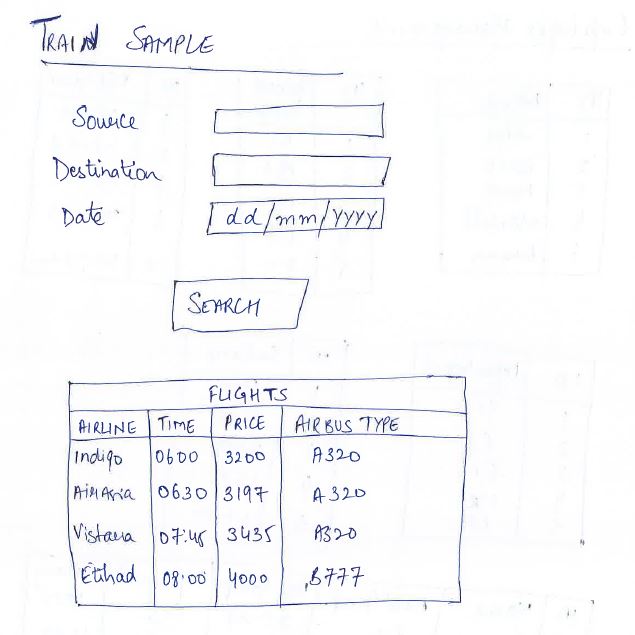 TRAIN SAMPLE
Source
Destination
Date dd/mm/YYYY
SEARCH
FLIGHTS
AIRLINE TIME PRICE AIRBUS TYPE
Indigo 0600 3200 A320
AirAsia 0630 3197 A320
Vistara 07:45 3435 A320
Etihad 08:00 4000 B777